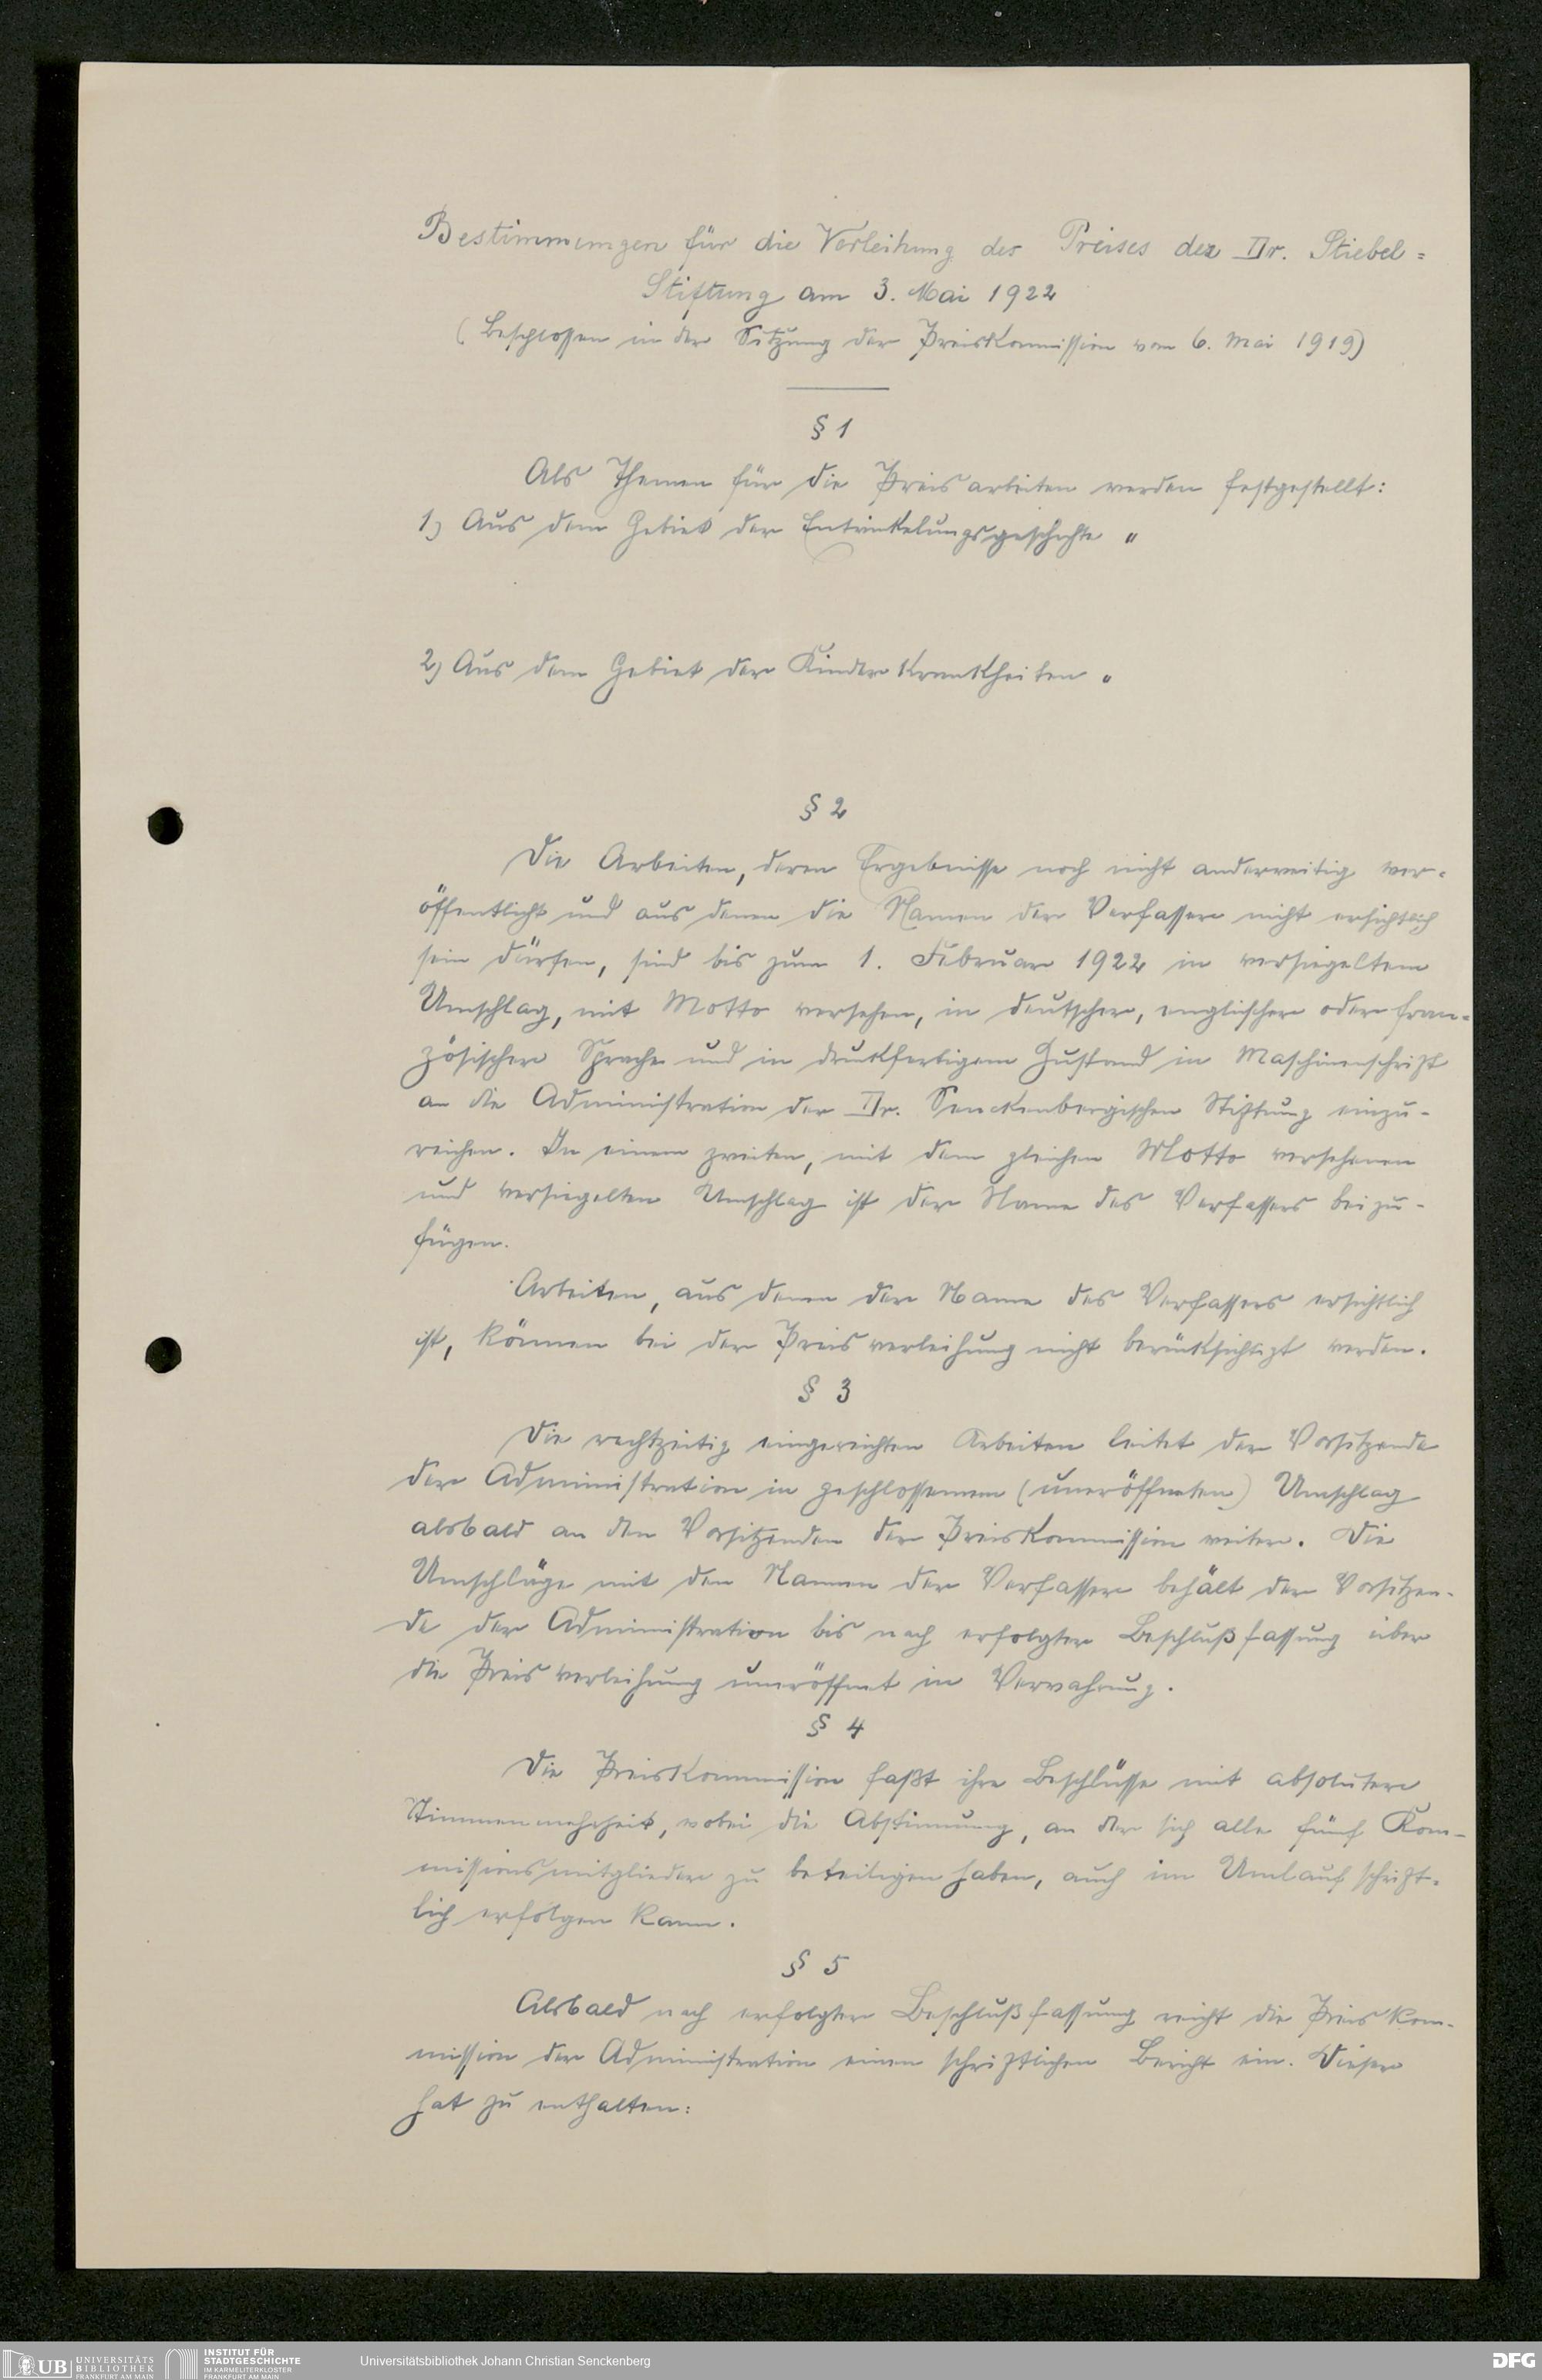 Bestimmungen für die Verleihung des Preises der Dr. Stiebel=
Stiftung am 3. Mai 1922
(Beschlossen in der Sitzung der Preiskommission vom 6. Mai 1919)
§ 1
Als Themen für die Preisarbeiten werden festgestellt:
1) Aus dem Gebiet der Entwickelungsgeschichte "
2) Aus dem Gebiet der Kinderkrankheiten "
§ 2
Die Arbeiten, deren Ergebnisse noch nicht anderweitig ver-
öffentlicht und aus denen die Namen der Verfasser nicht ersichtlich
sein dürfen, sind bis zum 1. Februar 1922 in versiegeltem
Umschlag, mit Motto versehen, in deutscher, englischer oder fran-
zösischer Sprache und in druckfertigem Zustand in Maschinenschrift
an die Administration der Dr. Senckenbergischen Stiftung einzu-
reichen. In einem zweiten, mit dem gleichen Motto versehenen
und versiegelten Umschlag ist der Name des Verfassers beizu-
fügen.
Arbeiten, aus denen der Name des Verfassers ersichtlich
ist, können bei der Preisverleihung nicht berücksichtigt werden.
§ 3
Die rechtzeitig eingereichten Arbeiten leitet der Vorsitzende
der Administration in geschlossenem (uneröffneten) Umschlag
alsbald an den Vorsitzenden der Preiskommission weiter. Die
Umschläge mit den Namen der Verfasser behält der Vorsitzen-
de der Administration bis nach erfolgter Beschlußfassung über
die Preisverleihung uneröffnet in Verwahrung.
§ 4
Die Preiskommission faßt ihre Beschlüsse mit absoluter
Stimmenmehrheit, wobei die Abstimmung, an der sich alle fünf Kom-
missionsmitglieder zu beteiligen haben, auch im Umlauf schrift-
lich erfolgen kann.
§ 5
Alsbald nach erfolgter Beschlußfassung reicht die Preiskom-
mission der Administration einen schriftlichen Bericht ein. Dieser
hat zu enthalten:
UB UNIVERSITÄTS
BIBLIOTHEK
FRANKFURT AM MAIN
INSTITUT FÜR
STADTGESCHICHTE
IM KARMELITERKLOSTER
FRANKFURT AM MAIN
Universitätsbibliothek Johann Christian Senckenberg
DFG